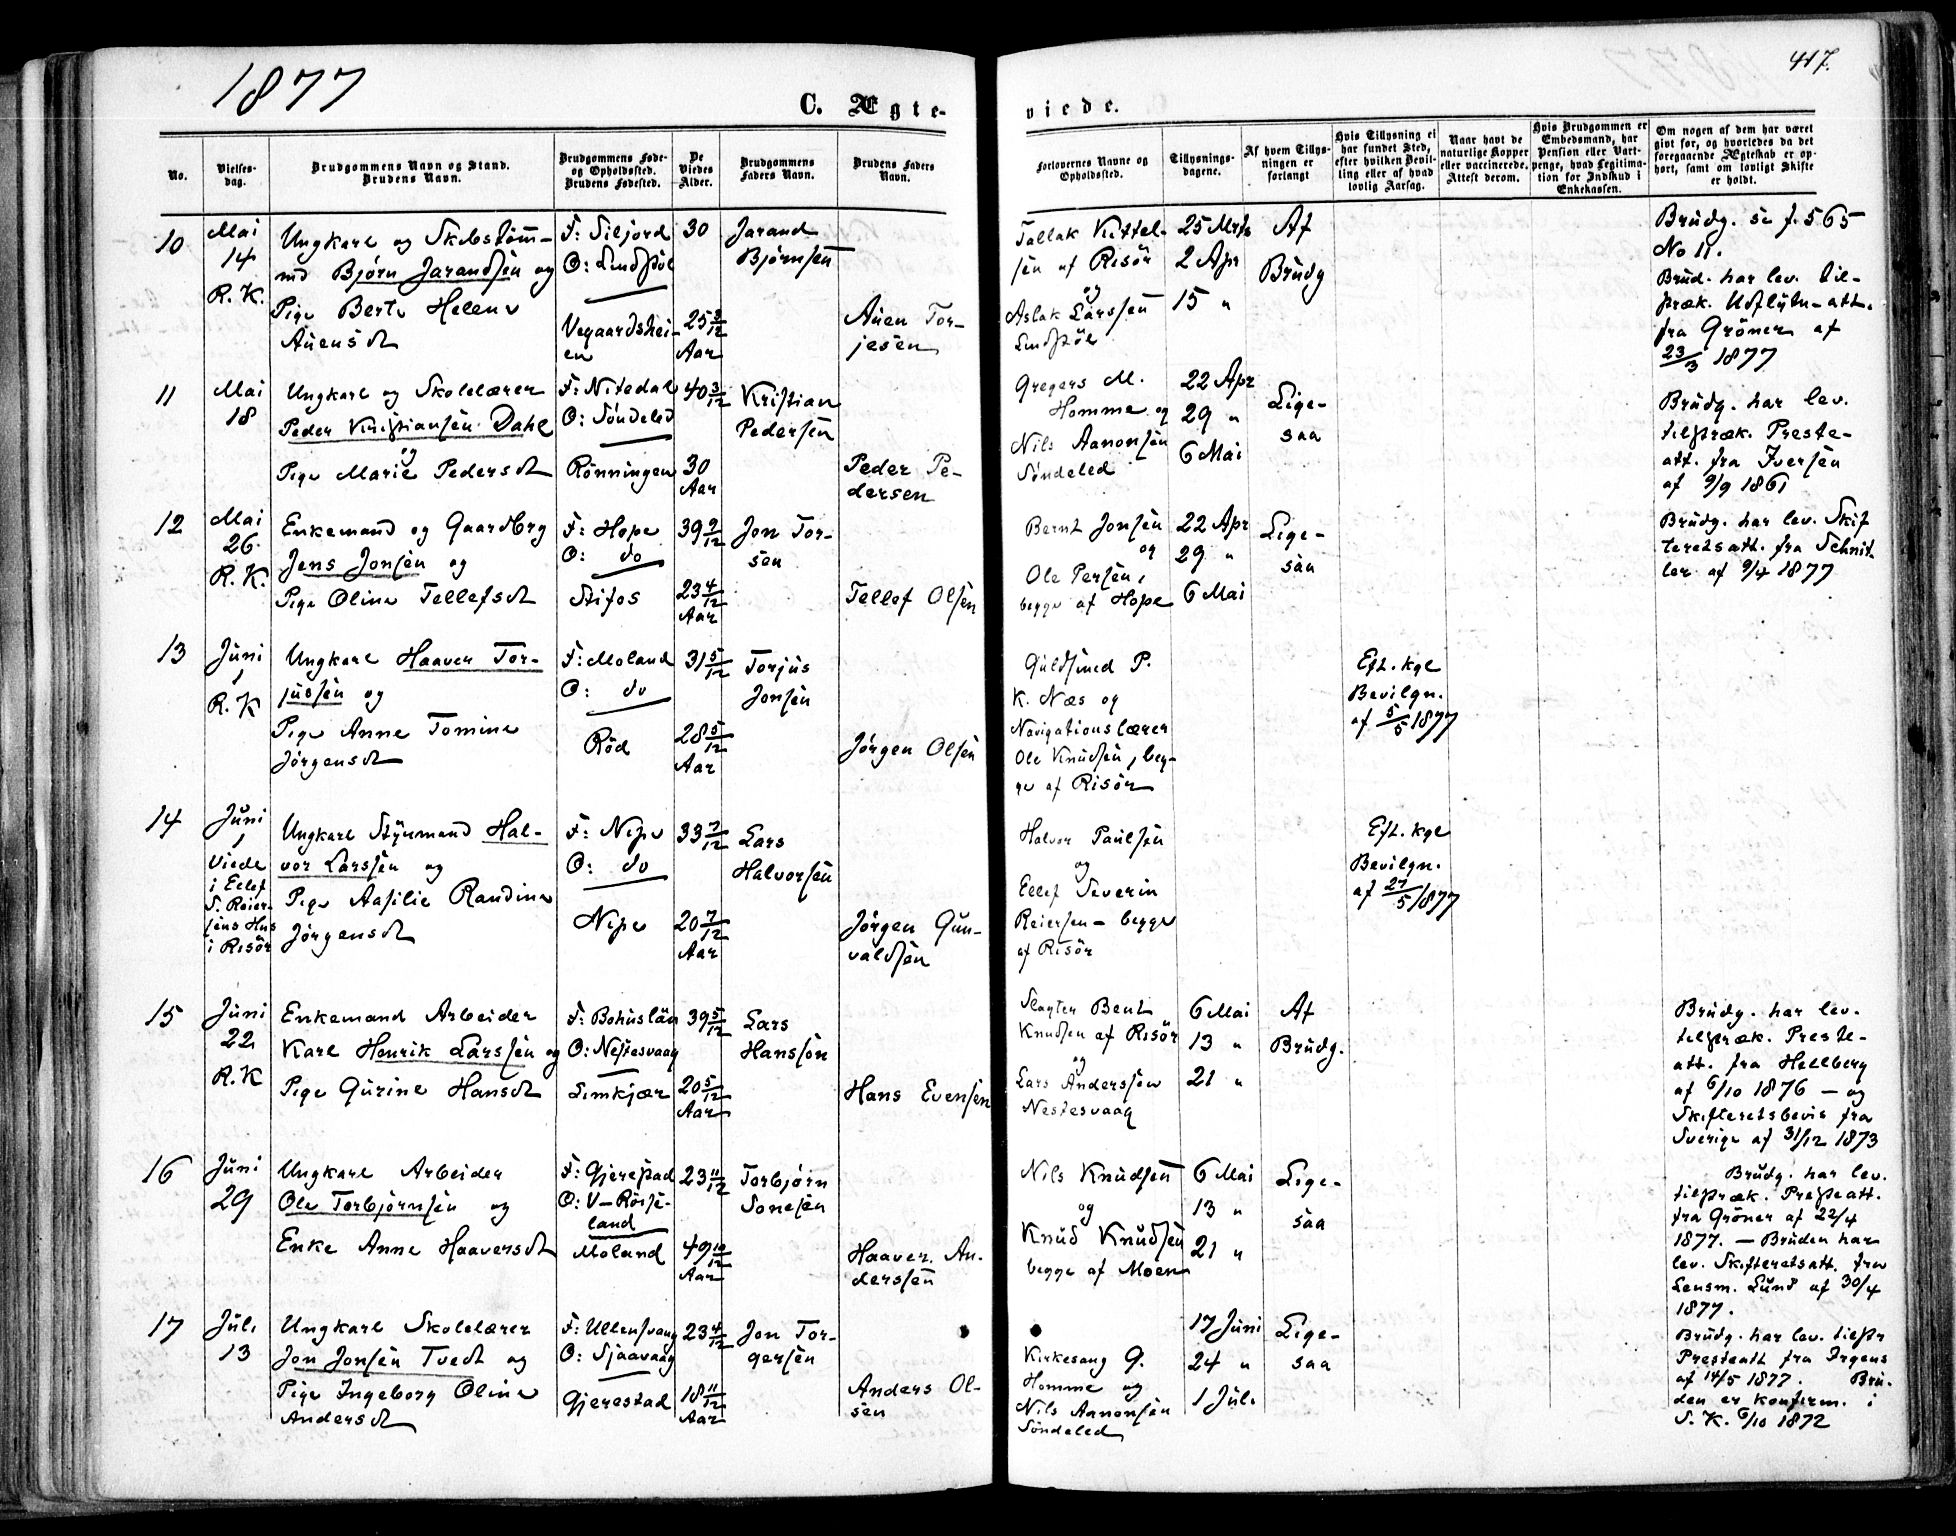 1877
417.
C. Ægte-
viede.
No.
Vielses-
dag.
Brudgommens Navn og Stand.
Brudens Navn.
Brudgommens Føde-
og Opholdssted.
Brudens Fødested.
De
Viedes
Alder.
Brudgommens
Faders Navn.
Brudens Faders
Navn.
Forlovernes Navne og
Opholdssted.
Tillysnings-
dagene.
Af hvem Tillys-
ningen er
forlangt
Hvis Tillysning ei
har fundet Sted,
efter hvilken Bevil-
ling eller af hvad
lovlig Aarsag.
Naar havt de
naturlige Kopper
eller vaccinerede.
Attest derom.
Hvis Brudgommen er
Embedsmand, har
Pension eller Vart-
penge, hvad Legitima-
tion for Indskud i
Enkekassen.
Om nogen af dem har været
gift før, og hvorledes da det
foregaaende Ægteskab er op-
hørt, samt om lovligt Skifte
er holdt.
10
Mai
14
R. K.
Ungkarl og Skibstøm-
md Bjørn Jarandsen og
Pige Berte Helene
Auensdt
F: Siljord
O: Lindstøl
Vegaardshei-
en
30
25 3/12
Aar
Jarand
Bjørnsen
Auen Tor-
jesen
Tallak Kittel-
sen af Risør
og
Aslak Larssen
Lindstøl
25 Mrts
2 Apr
15 "
Af
Brudg
Brudg. se f. 565
No 11.
Brud. har lev. til-
stræk. Udflytn-att.
fra Grøner af
23/3 1877
11
Mai
18
Ungkarl og Skolelærer
Peder Kristiansen Dahl
og
Pige Marie Pedersdt
F: Nitedal
O: Søndeled
Rønningen
40 3/12
30
Aar
Kristian
Pedersen
Peder Pe-
dersen
Gregers M.
Homme og
Nils Aanonsen
Søndeled
22 Apr
29 "
6 Mai
Lige-
saa
Brudg. har lev.
tilstræk. Preste-
att. fra Iversen
af 9/9 1861
12
Mai
26.
R. K.
Enkemand og Gaardbrg
Jens Jonsen og
Pige Oline Tellefsdt
F: Hope
O: do
Stifos
39 9/12
23 4/12
Aar
Jon Tor-
sen
Tellef Olsen
Bernt Jonsen
og
Ole Persen,
begge af Hope
22 Apr
29 "
6 Mai
Lige-
saa
Brudg. har lev. Skif
teretsatt. fra Schnit
ler af 9/4 1877
13
Juni
1
R. K
Ungkarl Haaver Tor-
jussen og
Pige Anne Tomine
Jørgensdt
F: Moland
O: do
Rød
31 5/12
28 5/12
Aar
Torjus
Jonsen
Jørgen Olsen
Guldsmed P.
K. Næs og
Navigationslærer
Ole Knudsen, beg-
ge af Risør
Eft. kgl
Bevilgn.
af 5/5 1877
14
Juni
1
Viede
i Ellef
S. Reier-
sens Hus
i Risør
Ungkarl Styrmand Hal-
vor Larssen og
Pige Aasilie Randine
Jørgensdt
F: Nipe
O: do
Nipe
33 7/12
20 7/12
Aar
Lars
Halvorsen
Jørgen Gun-
valdsen
Halvor Paulsen
og
Ellef Severin
Reiersen - begge
af Risør
Eft. kgl
Bevilgn.
af 27/5 1877
15
Juni
22
R. K
Enkemand Arbeider
Karl Henrik Larssen og
Pige Gurine Hansdt
F: Bohuslän
O: Nestesvaag
Limkjær
39 5/12
20 5/12
Aar
Lars
Hanssøn
Hans Evensen
Slagter Bent
Knudsen af Risør
og
Lars Anderssen
Nestesvaag
6 Mai
13 "
21 "
Af
Brudg.
Brudg. har lev.
tilstræk. Preste-
att. fra Hellberg
af 6/10 1876 - og
Skifteretsbevis fra
Sverige af 31/12 1873
16
Juni
29
Ungkarl Arbeider
Ole Torbjørnsen og
Enke Anne Haaversdt
F: Gjerestad
O: V-Røise-
land
Moland
23 11/12
49 10/12
Aar
Torbjørn
Sonesen
Haaver An-
derssen
Nils Knudsen
og
Knud Knudsen
begge af Moen
6 Mai
13 "
21 "
Lige-
saa
Brudg. har lev.
tilstræk. Presteatt.
fra Grøner af 22/4
1877. - Bruden har
lev. Skifteretsatt. fra
Lensm. Lund af 30/4
1877.
17
Juli
13
Ungkarl Skolelærer
Jon Jonsen Tvedt og
Pige Ingeborg Oline
Andersdt
F: Ullensvang
O: Sjaavaag
Gjerestad
23 4/12
18 11/12
Aar
Jon Tor-
gersen
Anders Ol-
sen
Kirkesang G.
Homme og
Nils Aanonsen
Søndeled
17 Juni
24 "
1 Juli
Lige-
saa
Brudg. har lev. tilstr
Presteatt fra Irgens
af 14/5 1877. Bru-
den er konfirm. i
S. K. 6/10 1872